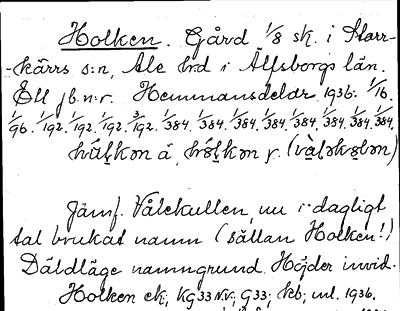 Holken. Gård 1/8 sk. i Starr-
-kärrs s:n, Ale hd i Älfsborgs län.
Ett jb.n:r. Hemmansdelar 1936: 1/16.
1/96. 1/192. 1/192. 3/192. 1/384. 1/384. 1/384. 1/384. 1/384. 1/384. 1/384. 1/384.
Jämf. Vålekullen, nu i dagligt
tal brukat namn (sällan Holken!)
Däldläge namngrund. Höjder invid.
Holken ek; KG33 N.V; G33; kb; uul. 1936.